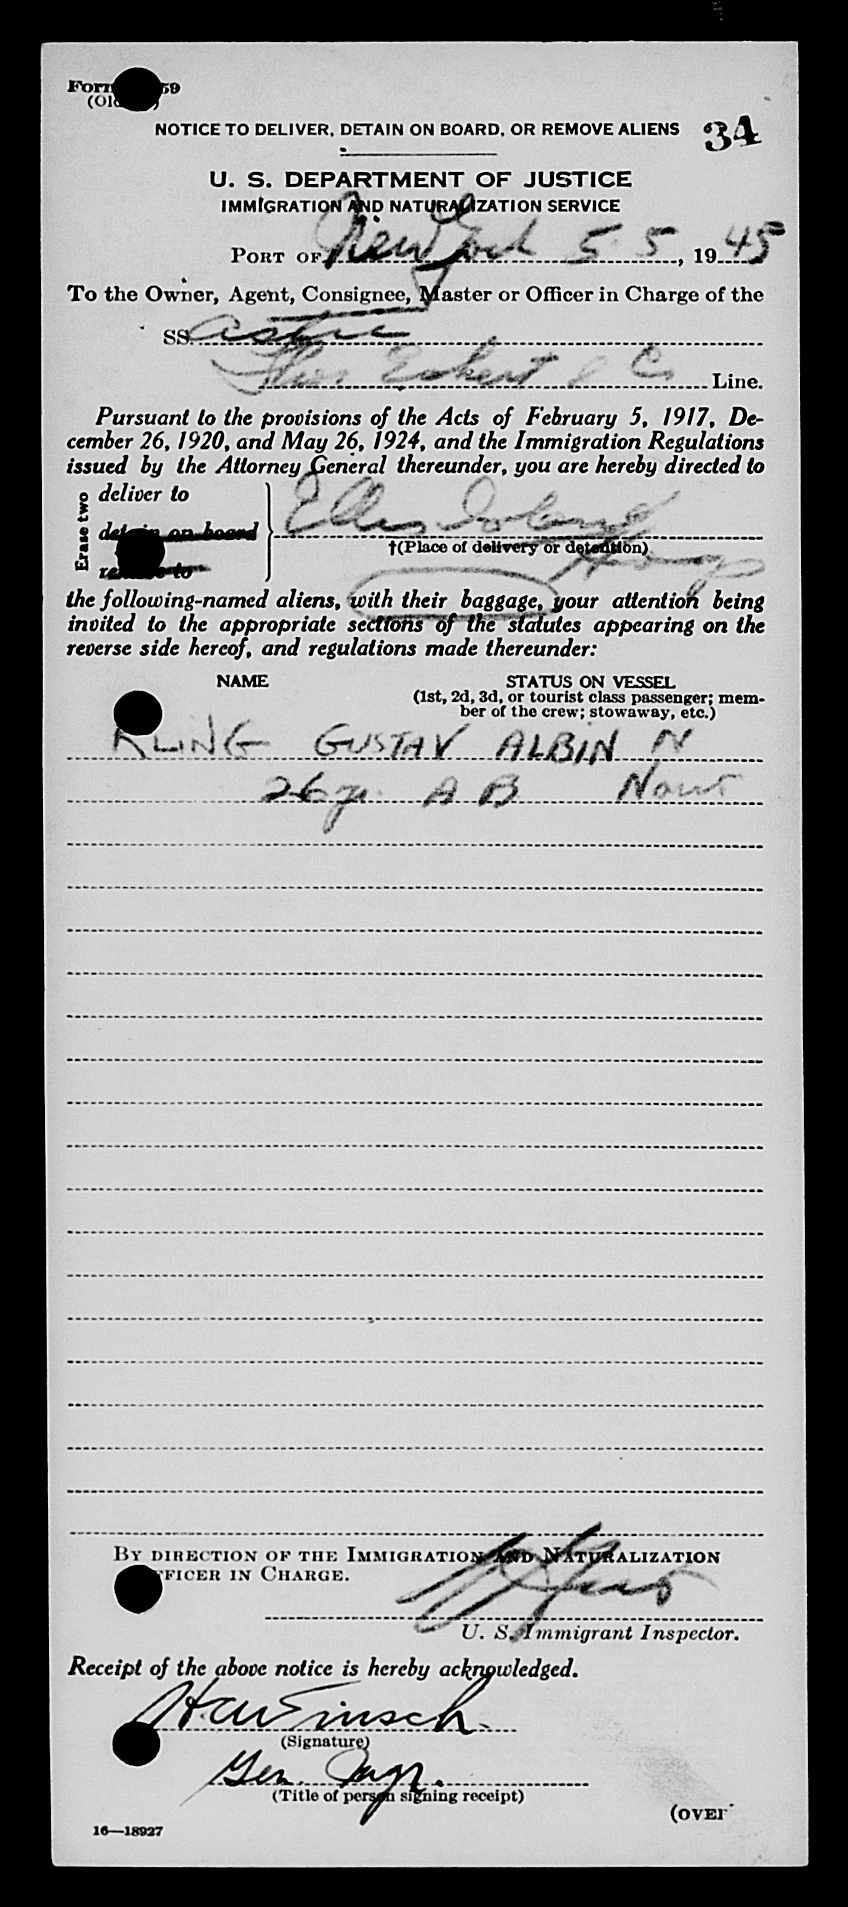 NOTICE TO DELIVER, DETAIN ON BOARD, OR REMOVE ALIENS 34
U. S. DEPARTMENT OF JUSTICE
IMMIGRATION AND NATURALIZATION SERVICE
PORT OF New York 5 5, 1945
To the Owner, Agent, Consignee, Master or Officer in Charge of the
SS.
Thos Eckert & Co Line.
Pursuant to the provisions of the Acts of February 5, 1917, De-
cember 26, 1920, and May 26, 1924, and the Immigration Regulations
issued by the Attorney General thereunder, you are hereby directed to
Erase two
deliver to
detain on board
Ellis Island
†(Place of delivery or detention)
remove to
the following-named aliens, with their baggage, your attention being
invited to the appropriate sections of the statutes appearing on the
reverse side hereof, and regulations made thereunder:
NAME STATUS ON VESSEL
(1st, 2d, 3d, or tourist class passenger; mem-
ber of the crew; stowaway, etc.)
KLING GUSTAV ALBIN N
26 yr. A B
BY DIRECTION OF THE IMMIGRATION AND NATURALIZATION
OFFICER IN CHARGE.
U. S. Immigrant Inspector.
Receipt of the above notice is hereby acknowledged.
(Signature)
Gen. Mgr.
(Title of person signing receipt)
(OVER
16—18927